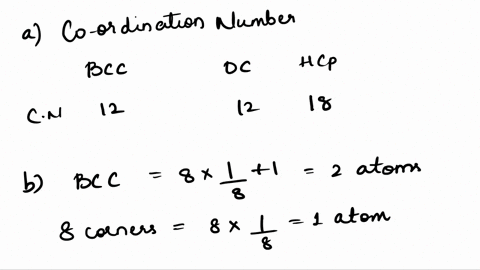 a) Co-ordination Number
BCC DC HCP
C.N 12 12 18
b) BCC = 8 × 1/8 + 1 = 2 atoms
8 corners = 8 × 1/8 = 1 atom